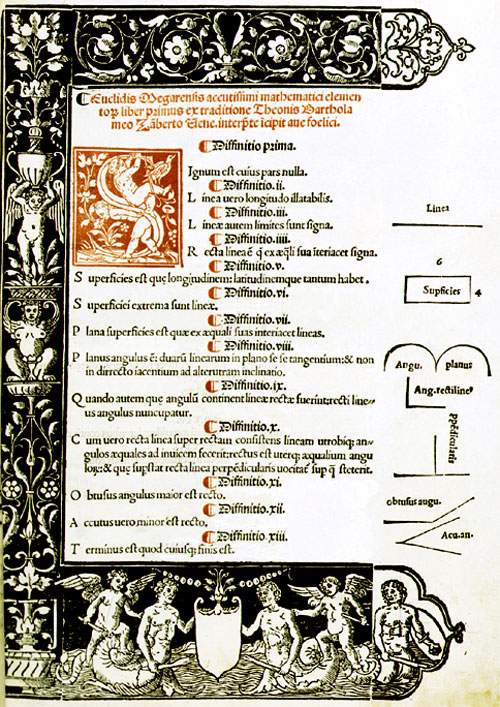 Euclidis Megarensis accutissimi mathematici elemen
toꝝ liber primus ex traditione Theonis Barthola
meo Zāberto Uene. interp̄te īcipit aue foelici.
Diffinitio prima.
Signum est cuius pars nulla.
Diffinitio.ii.
Linea uero longitudo illatabilis.
Diffinitio.iii.
Lineæ autem limites sunt signa.
Diffinitio.iiii.
Recta linea ē q̄ ex æq̄li sua iteriacet signa.
Diffinitio.v.
Superficies est quę longitudinem: latitudinemque tantum habet.
Diffinitio.vi.
Superficiei extrema sunt lineæ.
Diffinitio.vii.
Plana superficies est quæ ex æquali suas interiacet lineas.
Diffinitio.viii.
Planus angulus ē: duarū linearum in plano se se tangentium: & non
in dirrecto iacentium ad alterutram inclinatio.
Diffinitio.ix.
Quando autem quę angulū continent lineæ rectæ fuerint: recti line-
us angulus nuncupatur.
Diffinitio.x.
Cum uero recta linea super rectam consistens lineam utrobiq; an-
gulos æquales ad inuicem fecerit: rectus est uterq; æqualium angu
loꝝ: & quę supstat recta linea perpēdicularis uocitaẽ sup q̄ steterit.
Diffinitio.xi.
Obtusus angulus maior est recto.
Diffinitio.xii.
Accutus uero minor est recto.
Diffinitio.xiii.
Terminus est quod cuiusq; finis est.
Linea
6
Supficies 4
Angu. planus
Ang. rectiline⁹
Ppēdicularis
obtusus augu.
Acu.an.